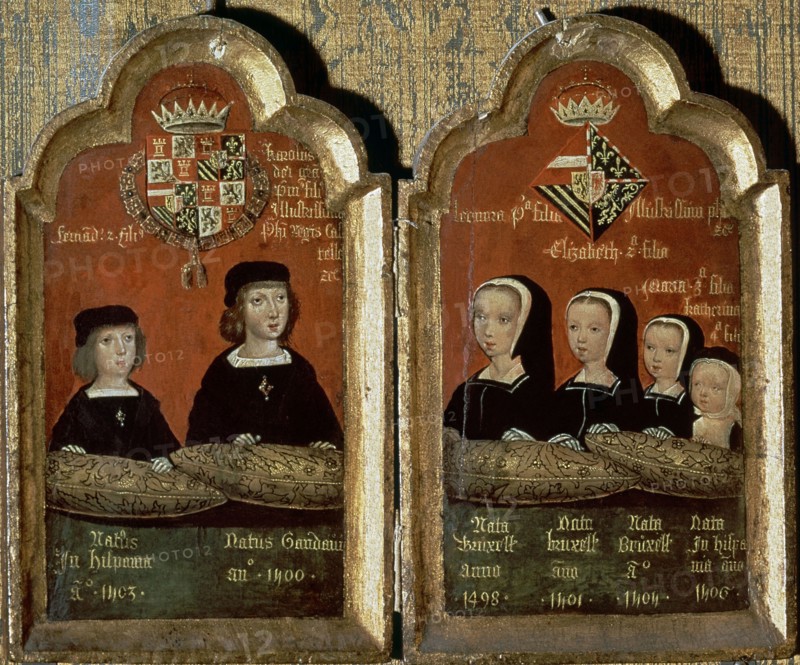 Karolus
dei gra
fili
Illustrissimi
Phi Regis Cas
telle
zc
fernãd. z. fili
Leonora pᵃ filia Illustrissimi phi
zc
Elizabeth · zᵃ · filia
Maria · 3ᵃ filia
Katherina
4ᵃ fili
Natus
In hispania
ãº · 1503 ·
Natus Gandaui
anº · 1500 ·
Nata
Bruxell
anno
· 1498 ·
Nata
bruxell
ãno
· 1501 ·
Nata
Bruxell
ãº
· 1505 ·
Nata
In hispa
nia ano
· 1506 ·
PHOTO12